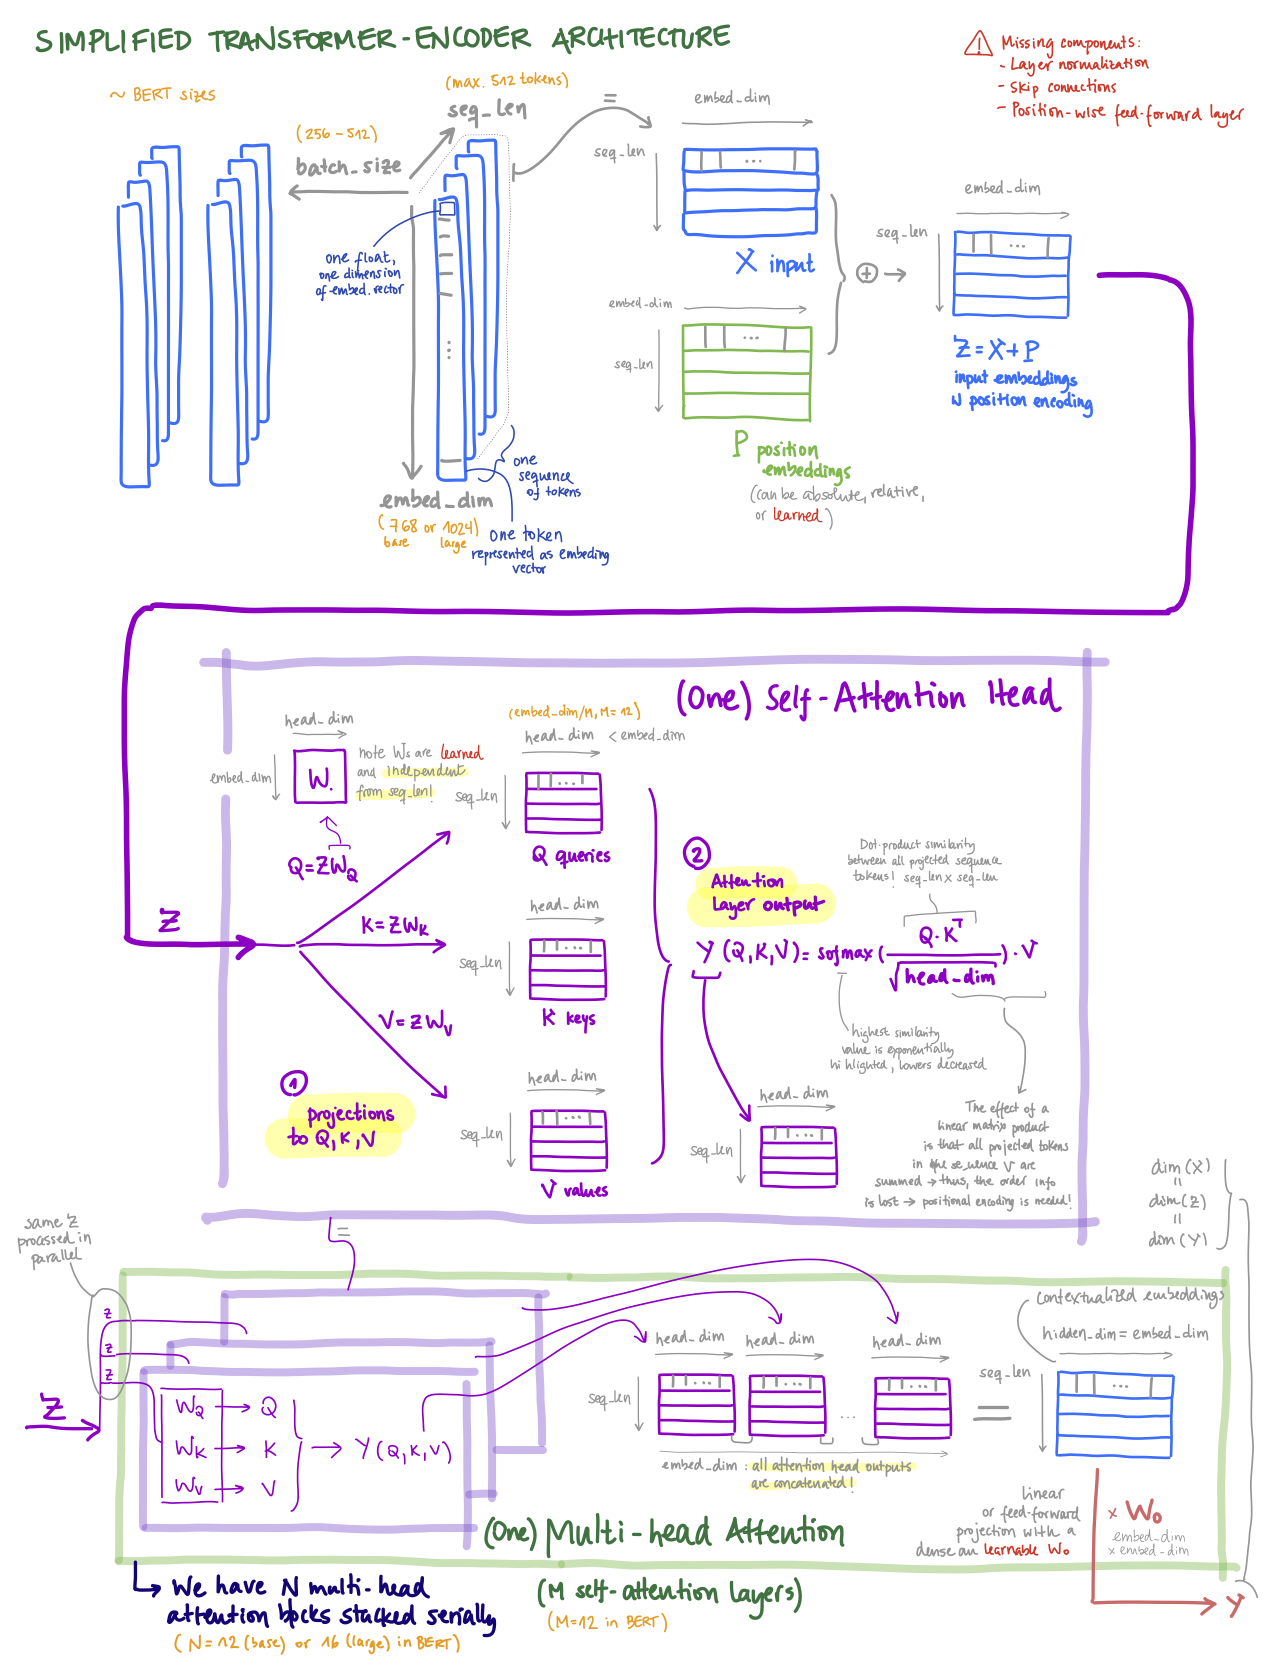 SIMPLIFIED TRANSFORMER-ENCODER ARCHITECTURE
Missing components:
- Layer normalization
- Skip connections
- Position-wise feed-forward layer
~ BERT sizes
(256 - 512)
batch_size
(max. 512 tokens)
seq_len
one float,
one dimension
of embed. vector
...
embed_dim
(768 or 1024)
base large
one
sequence
of tokens
one token
represented as embeding
vector
=
embed_dim
seq_len
...
X input
embed_dim
seq_len
...
P position
embeddings
(can be absolute, relative,
or learned)
+
embed_dim
seq_len
...
Z = X + P
input embeddings
w position encoding
(One) Self-Attention Head
head_dim
embed_dim
W.
note Ws are learned
and independent
from seq_len!
Q = ZW_Q
(embed_dim/M, M=12)
head_dim < embed_dim
seq_len
...
Q queries
Z
K = ZW_K
head_dim
seq_len
...
K keys
V = ZW_V
head_dim
seq_len
...
V values
1
projections
to Q, K, V
2
Attention
Layer output
Dot-product similarity
between all projected sequence
tokens! seq_len x seq_len
Y (Q, K, V) = sofmax ( Q · K^T / √head-dim ) · V
highest similarity
value is exponentially
hi hlighted, lowers decreased
head_dim
seq_len
...
The effect of a
linear matrix product
is that all projected tokens
in the se uence V are
summed → thus, the order info
is lost → positional encoding is needed!
dim (X)
=
dim (Z)
=
dim (Y)
same Z
processed in
parallel
=
Z
Z
Z
Z
W_Q → Q
W_K → K
W_V → V
→ Y (Q, K, V)
head_dim head_dim head_dim
seq_len
... ... ...
...
embed_dim : all attention head outputs
are concatenated!
=
contextualized embeddings
hidden_dim = embed_dim
seq_len
...
linear
or feed-forward
projection with a
dense an learnable W_o
x W_o
embed_dim
x embed-dim
Y
(One) Multi-head Attention
(M self-attention layers)
(M=12 in BERT)
We have N multi-head
attention blocks stacked serially
(N=12 (base) or 16 (large) in BERT)